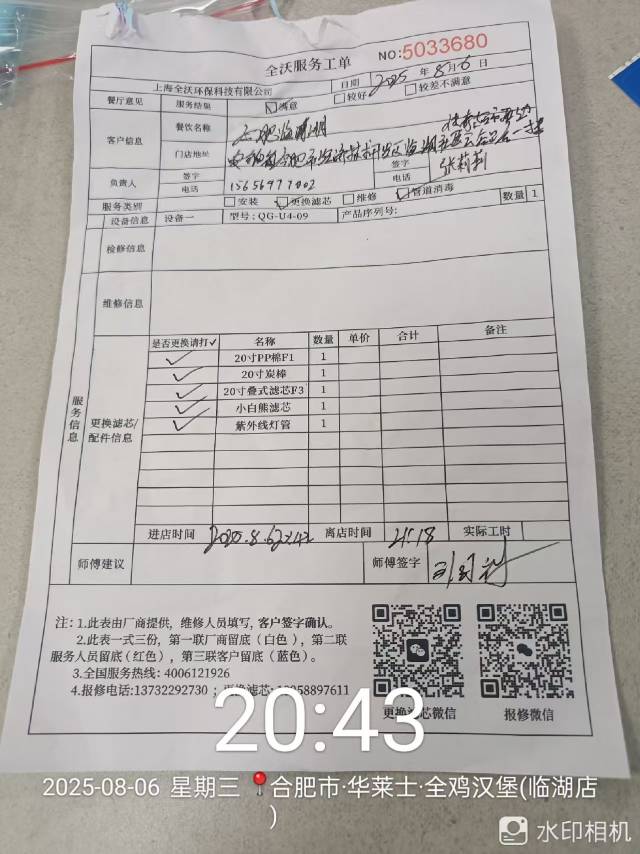 全沃服务工单
NO:5033680
上海全沃环保科技有限公司 日期 2025 年 8 月 6 日
餐厅意见 服务结果 满意 较好 较差不满意
客户信息 餐饮名称 合肥临湖
门店地址
签字
负责人 签字 电话 张莉莉
电话 15656977002
服务类别 安装 更换滤芯 维修 管道消毒
设备信息 设备一 型号: QG-U4-09 产品序列号: 数量 1
检修信息
维修信息
服务信息
更换滤芯/配件信息
是否更换请打✓ 名称 数量 单价 合计 备注
✓ 20寸PP棉F1 1
✓ 20寸炭棒 1
✓ 20寸叠式滤芯F3 1
✓ 小白熊滤芯 1
✓ 紫外线灯管 1
进店时间 离店时间 21:18 实际工时
师傅建议 师傅签字
注: 1.此表由厂商提供, 维修人员填写, 客户签字确认。
2.此表一式三份, 第一联厂商留底 (白色), 第二联
服务人员留底(红色), 第三联客户留底 (蓝色)。
3.全国服务热线: 4006121926
4.报修电话:13732292730 ; 更换滤芯: 8897611
更换滤芯微信 报修微信
20:43
2025-08-06 星期三 合肥市·华莱士·全鸡汉堡(临湖店
)
水印相机